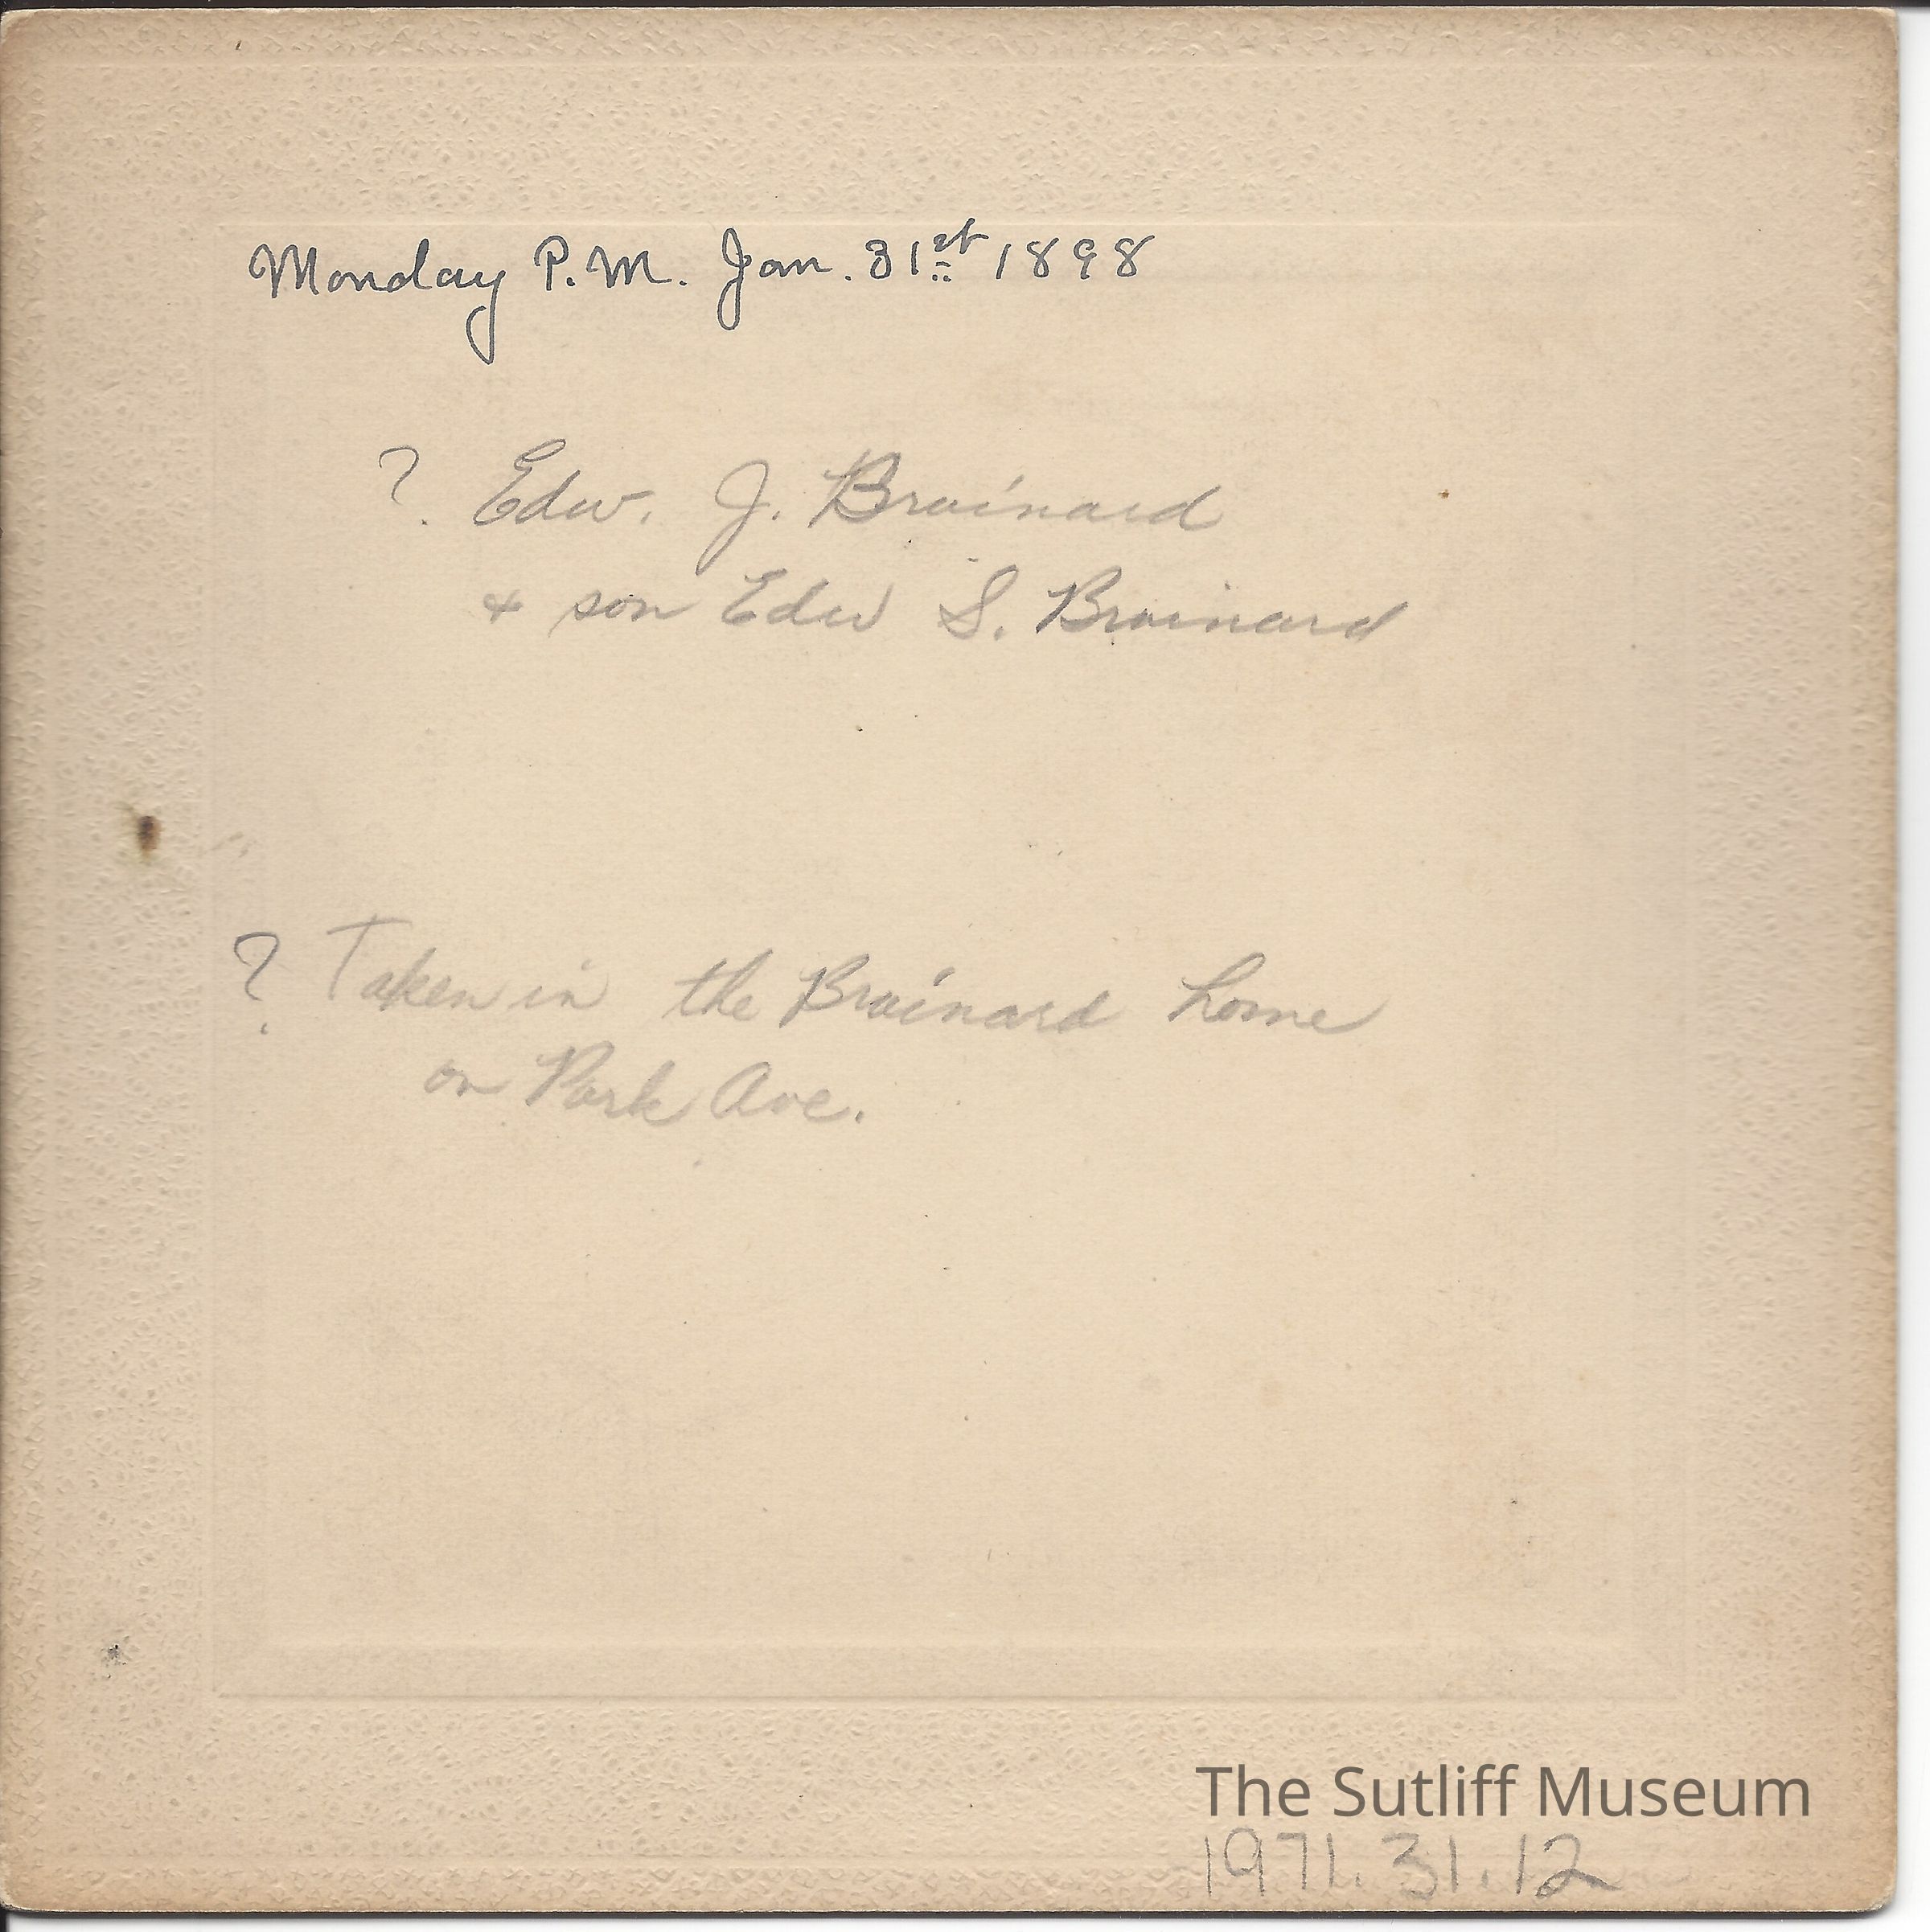 Monday P.M. Jan. 31st 1898
? Edw. J. Brainard
& son Edw S. Brainard
? Taken in the Brainard home
on Park Ave.
The Sutliff Museum
1971.31.12